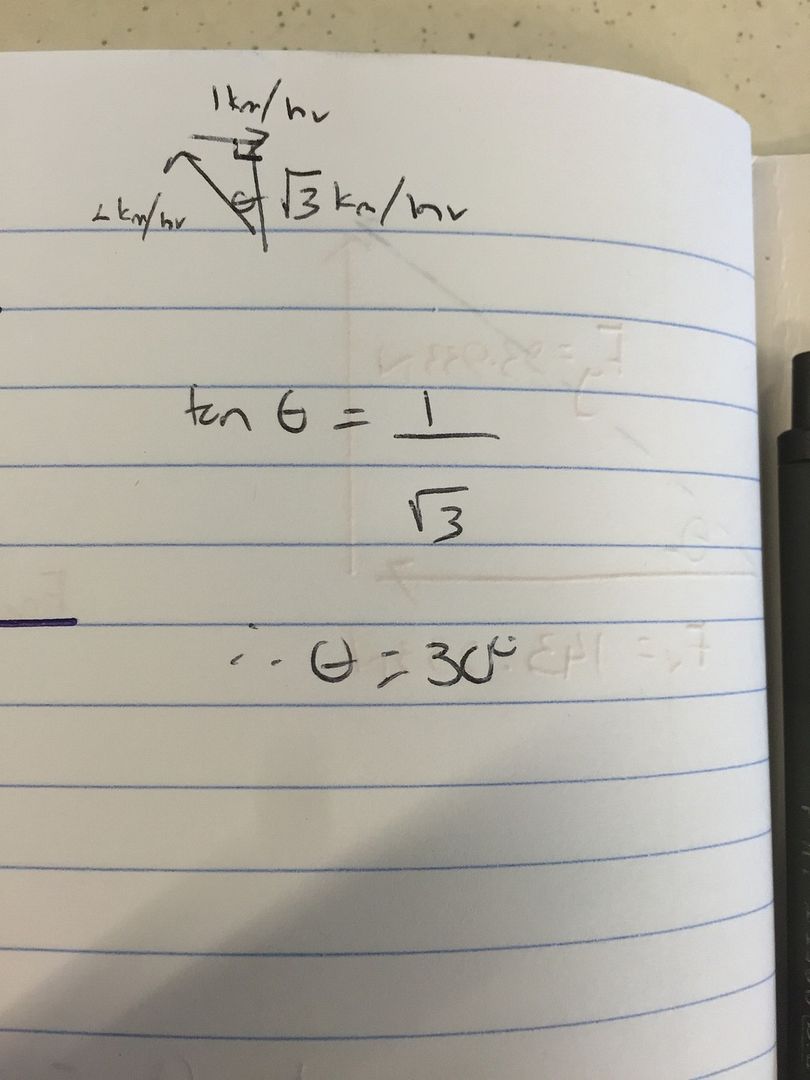 1 km/hr
θ √3 km/hr
2 km/hr
tan θ = 1
√3
∴ θ = 30°